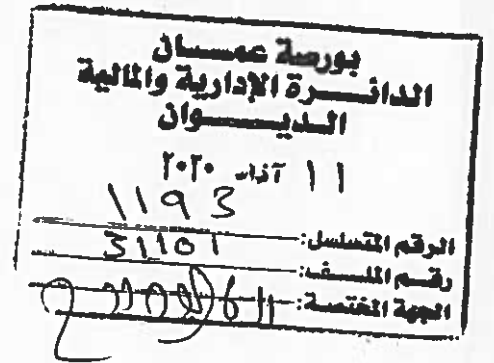 بورصة عمـــان
الدائـــرة الإدارية والمالية
الديـــــوان
١١ آذار ٢٠٢٠
1193
الرقم المتسلسل:
31101
رقـــم الملـــف:
الجهة المختصة: